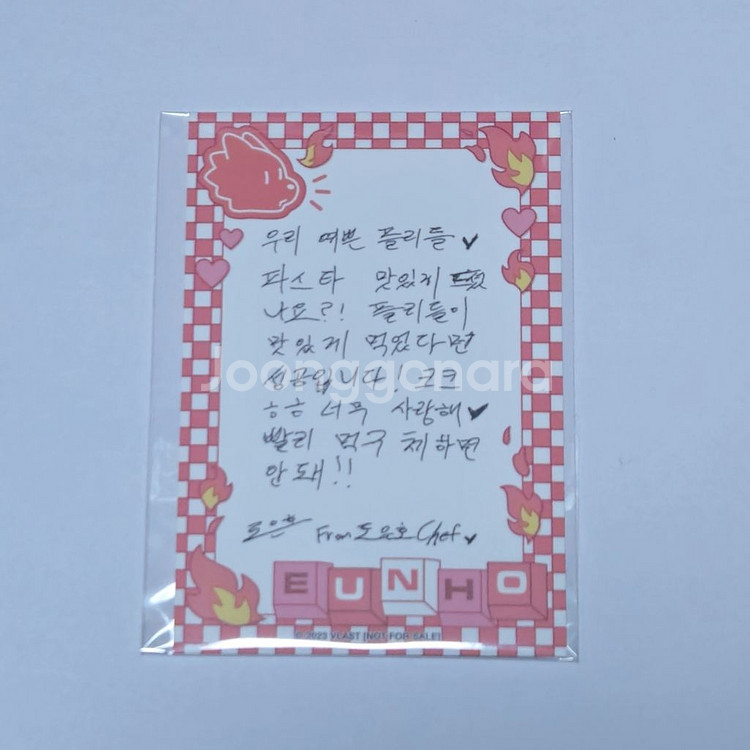 우리 예쁜 플리들
파스타 맛있게 드셨
나요?! 플리들이
맛있게 먹었다면
성공입니다! ㅋㅋ
ㅎㅎ 너무 사랑해
빨리 먹구 체하면
안돼!!
도은호 From 도은호 Chef
EUNHO
© 2023 VLAST (NOT FOR SALE)
Joonggonara